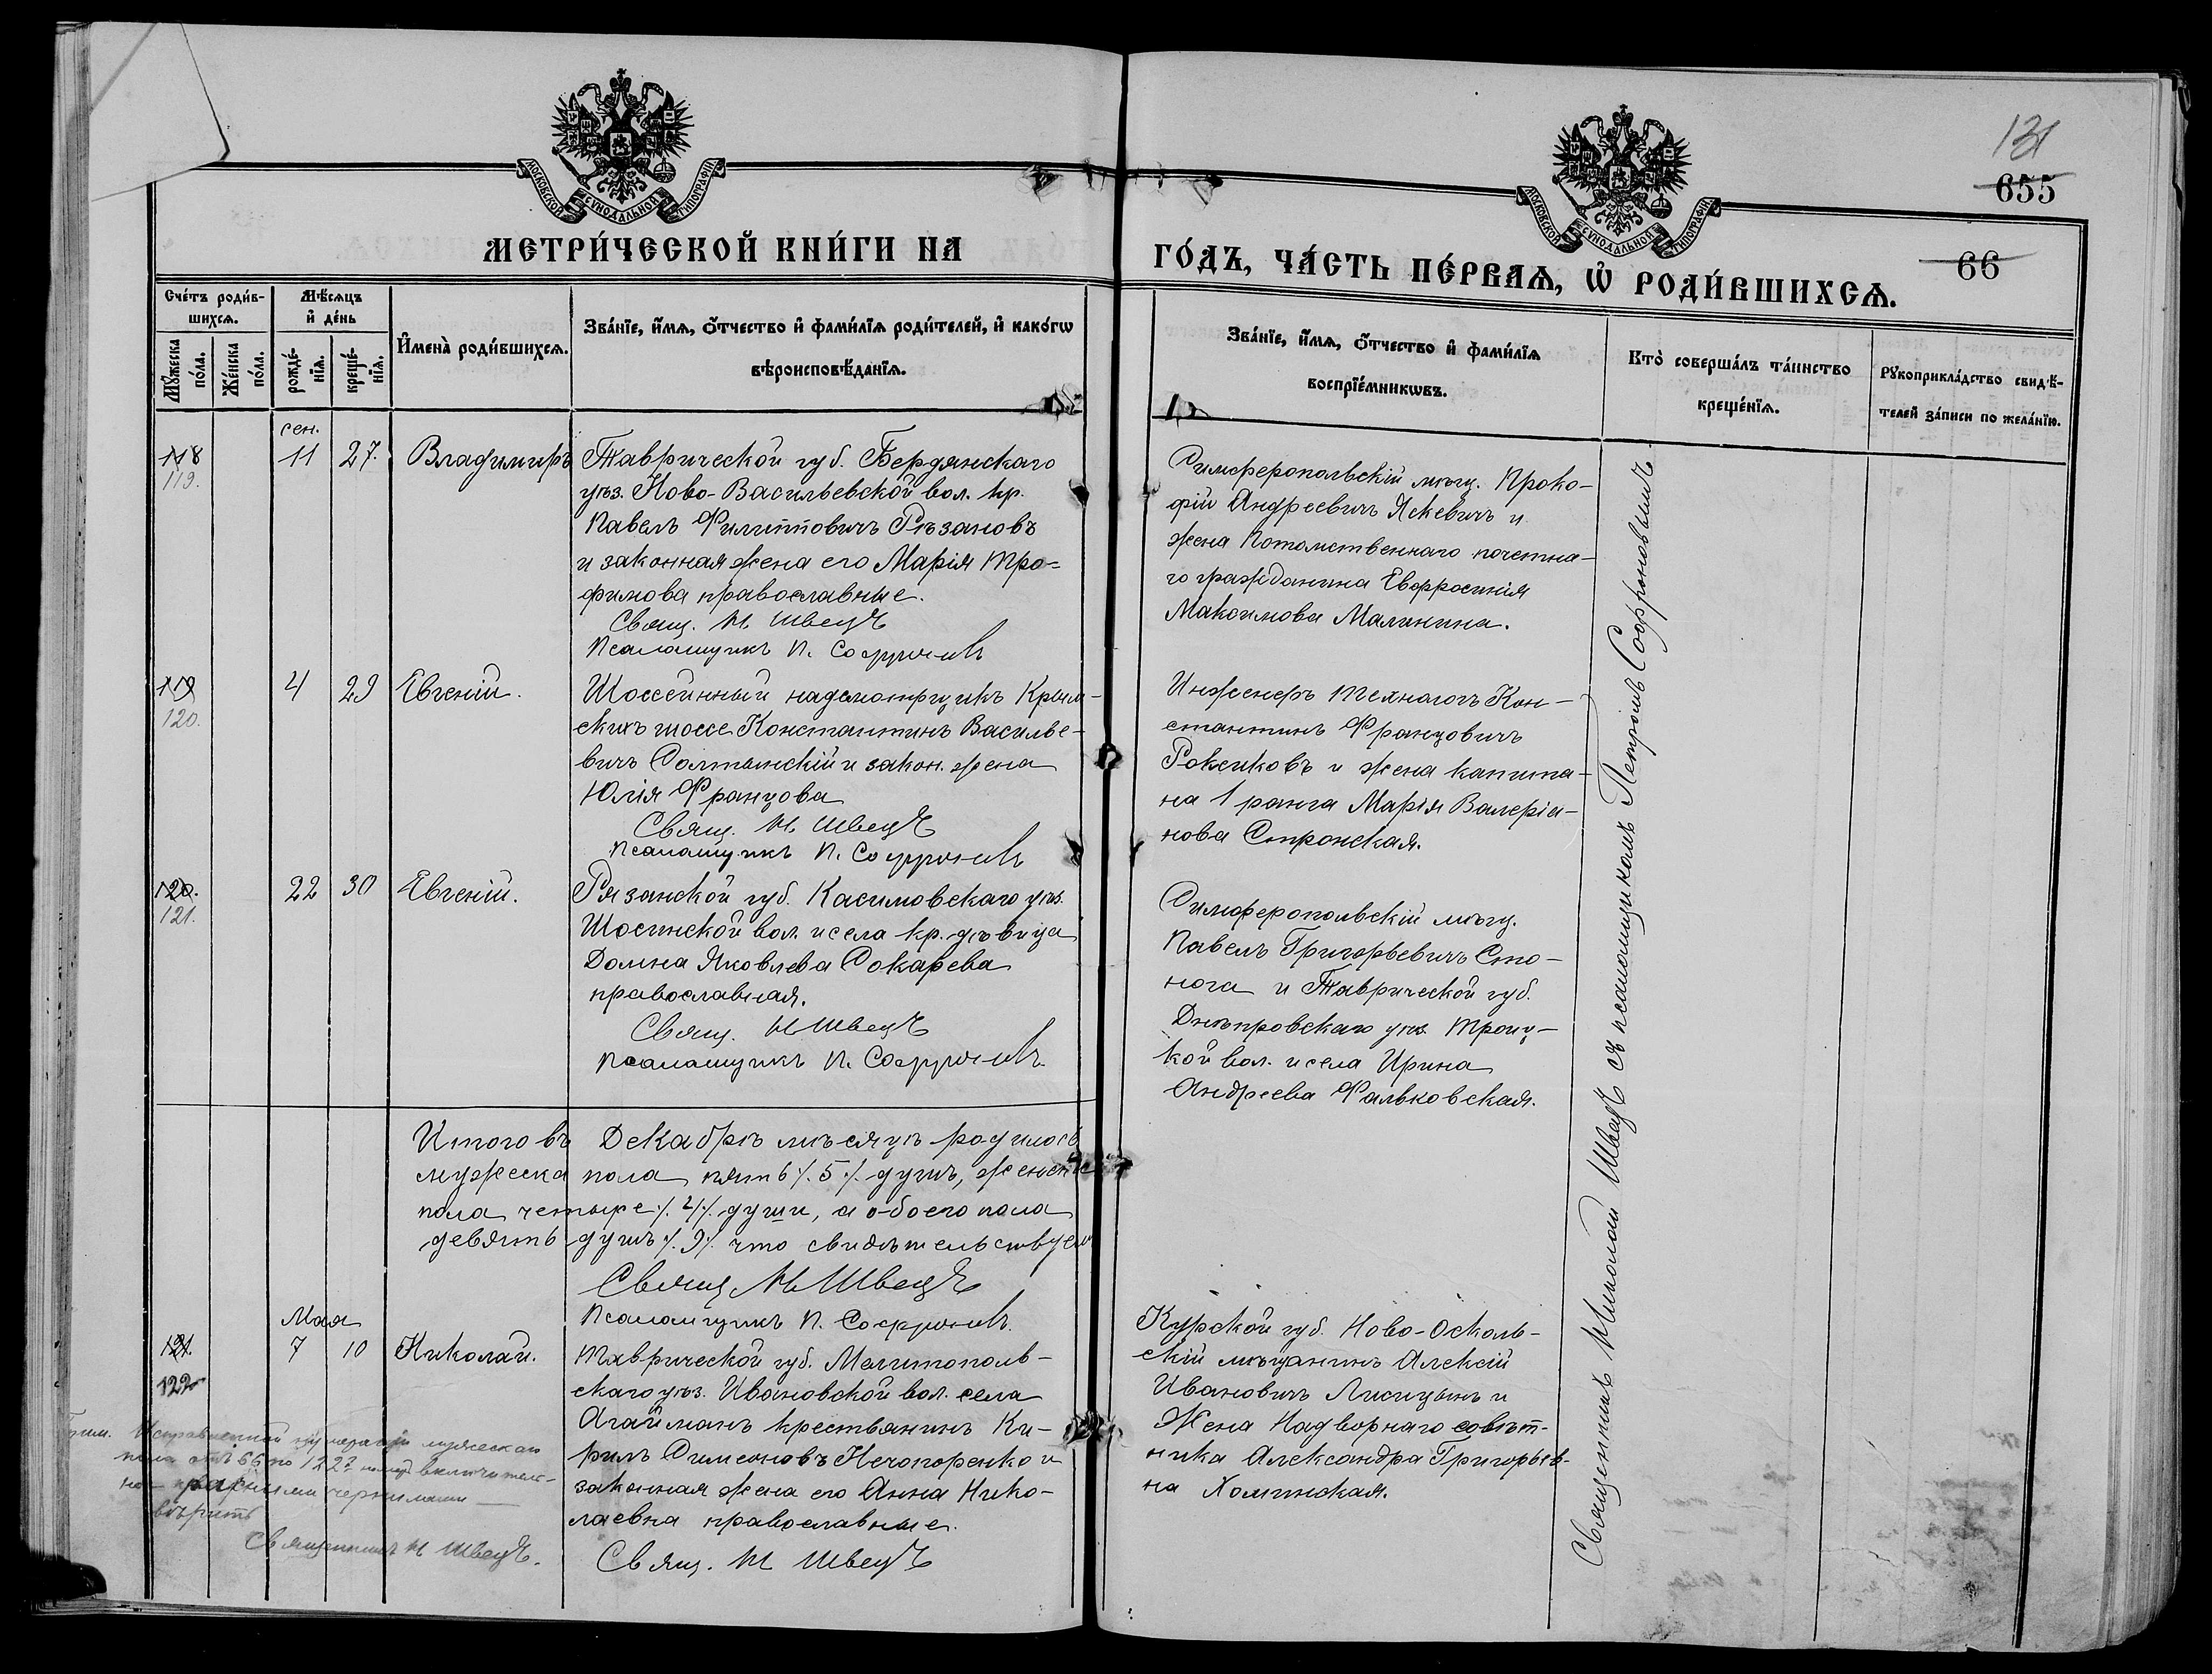 131
655
66
МОСКОВСКОЙ СѴНОДАЛЬНОЙ ТИПОГРАФІИ
МОСКОВСКОЙ СѴНОДАЛЬНОЙ ТИПОГРАФІИ
МЕТРИ́ЧЕСКОЙ КНИ́ГИ НА
ГО́ДЪ, ЧА́СТЬ ПЕ́РВАѦ, Ѡ҆ РОДИ́ВШИХСѦ.
Сче́тъ роди́в-
шихсѧ.
Мꙋ́жеска по́ла.
Же́нска по́ла.
Мѣ́сѧцъ
и҆ де́нь
рожде́-
нїѧ.
креще́-
нїѧ.
И҆мена̀ роди́вшихсѧ.
Зва́нїе, и҆́мѧ, ѻ҆́тчество и҆ фами́лїѧ роди́телей, и҆ како́гѡ
вѣроисповѣ́данїѧ.
Зва́нїе, и҆́мѧ, ѻ҆́тчество и҆ фами́лїѧ
воспрїе́мникѡвъ.
Кто̀ соверша́лъ та́инство
креще́нїѧ.
Рꙋкоприкла́дство свидѣ́-
телей за́писи по жела́нїю.
118
119.
сен.
11
27.
Владимиръ
Таврической губ. Бердянскаго
уѣз. Ново-Васильевской вол. кр.
Павелъ Филипповичъ Рѣзановъ
и законная жена его Марія Тро-
фимова православные.
Свящ. Н Швецъ
Псаломщикъ П. Софроновъ
Симферопольскій мѣщ. Проко-
фій Андреевичъ Яскевичъ и
жена Потомственнаго почетна-
го гражданина Евфросинія
Максимова Малинина.
119
120.
4
29
Евгеній.
Шоссейнный надсмотрщикъ Крым-
скихъ шоссе Константинъ Василье-
вичъ Солтынскій и закон. жена
Юлія Францова
Свящ. Н Швецъ
Псаломщикъ П. Софроновъ
Инженеръ Технологъ Кон-
стантинъ Францовичъ
и жена капита-
на 1 ранга Марія Валеріа-
нова Стронская.
120.
121.
22
30
Евгеній.
Рязанской губ. Касимовскаго уѣз.
Шостинской вол. и села кр. дѣвица
Домна Яковлева Сокарева
православная.
Свящ. Н Швецъ
Псаломщикъ П. Софроновъ.
Симферопольскій мѣщ.
Павелъ Григорьевичъ Сто-
нога и Таврической губ.
Днѣпровскаго уѣз. Троиц-
кой вол. и села Ирина
Андреева Фальковская.
Итого въ Декабрѣ мѣсяцѣ родилось
мужеска пола пять /. 5 /. душъ, женска
пола четыре /. 4 /. души, а обоего пола
девять душъ /. 9 /. что свидѣтельствуемъ
Свящ. Н Швецъ
Псаломщикъ П. Софроновъ.
121.
122
Мая
7
10
Николай.
Таврической губ. Мелитополь-
скаго уѣз. Ивановской вол. села
Агайманъ крестьянинъ Ки-
рилъ Симеоновъ Нечопоренко и
законная жена его Анна Нико-
лаевна православные.
Свящ. Н Швецъ
Курской губ. Ново-Осколь-
скій мѣщанинъ Алексій
Ивановичъ Лисицынъ и
Жена Надворнаго совѣт-
ника Александра Григорьев-
на Хоминская.
Исправленной нумераціи мужеска
пола отъ 66 по 122 включитель-
но красными чернилами —
вѣрить
Священникъ Н Швецъ.
Священникъ Николай Швецъ съ псаломщикомъ Петромъ Софроновымъ